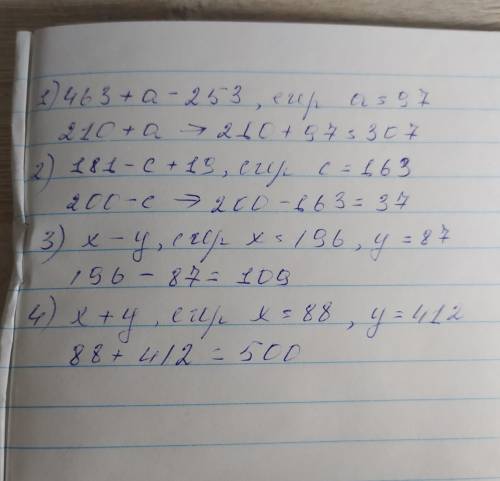 1) 463 + a - 253, егер a = 97
210 + a → 210 + 97 = 307
2) 181 - c + 19, егер c = 163
200 - c → 200 - 163 = 37
3) x - y, егер x = 196, y = 87
196 - 87 = 109
4) x + y, егер x = 88, y = 412
88 + 412 = 500